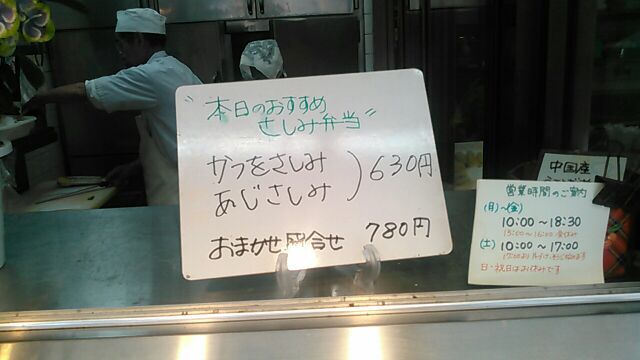 "本日のおすすめ
さしみ弁当"
かつをさしみ
あじさしみ
) 630円
おまかせ 盛合せ 780円
中国産
営業時間のご案内
(月)〜(金)
10:00〜18:30
(土) 10:00〜17:00
日・祝日はお休みです